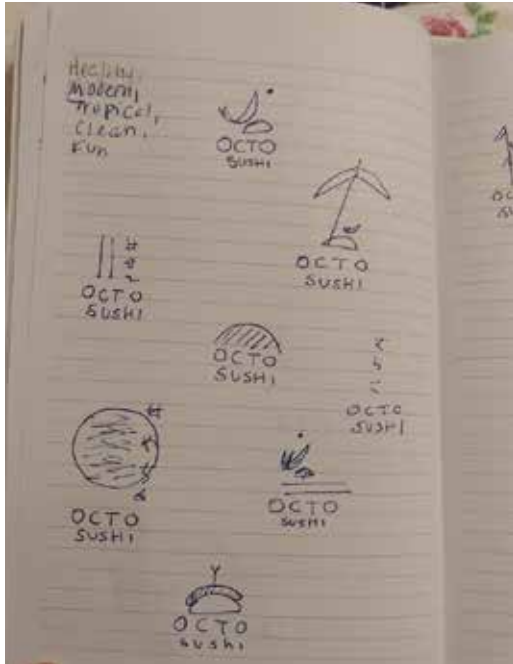 Healthy,
Modern,
Tropical,
Clean,
Fun
OCTO
SUSHI
OCTO
SUSHI
OCTO
SUSHI
OCTO
SUSHI
OCTO
SUSHI
OCTO
SUSHI
OCTO
SUSHI
OCTO
SUSHI